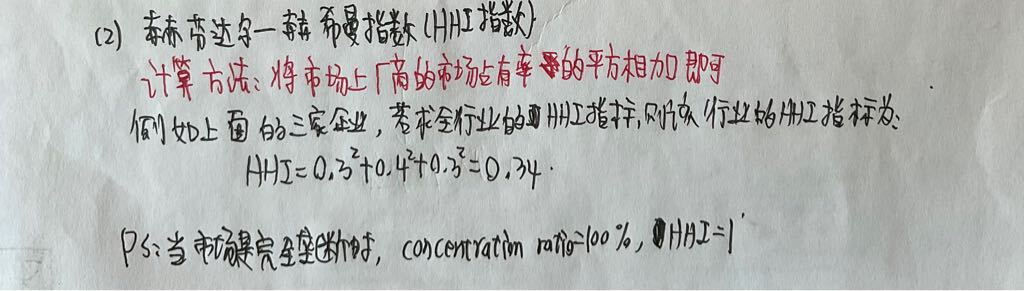 (2) 赫芬达尔—赫希曼指数(HHI指数)
计算方法：将市场上厂商的市场占有率的平方相加即可
例如上面的三家企业，若求全行业的HHI指标，则该行业的HHI指标为：
HHI=0.3²+0.4²+0.3²=0.34.
PS：当市场是完全垄断时，concentration ratio=100%，HHI=1